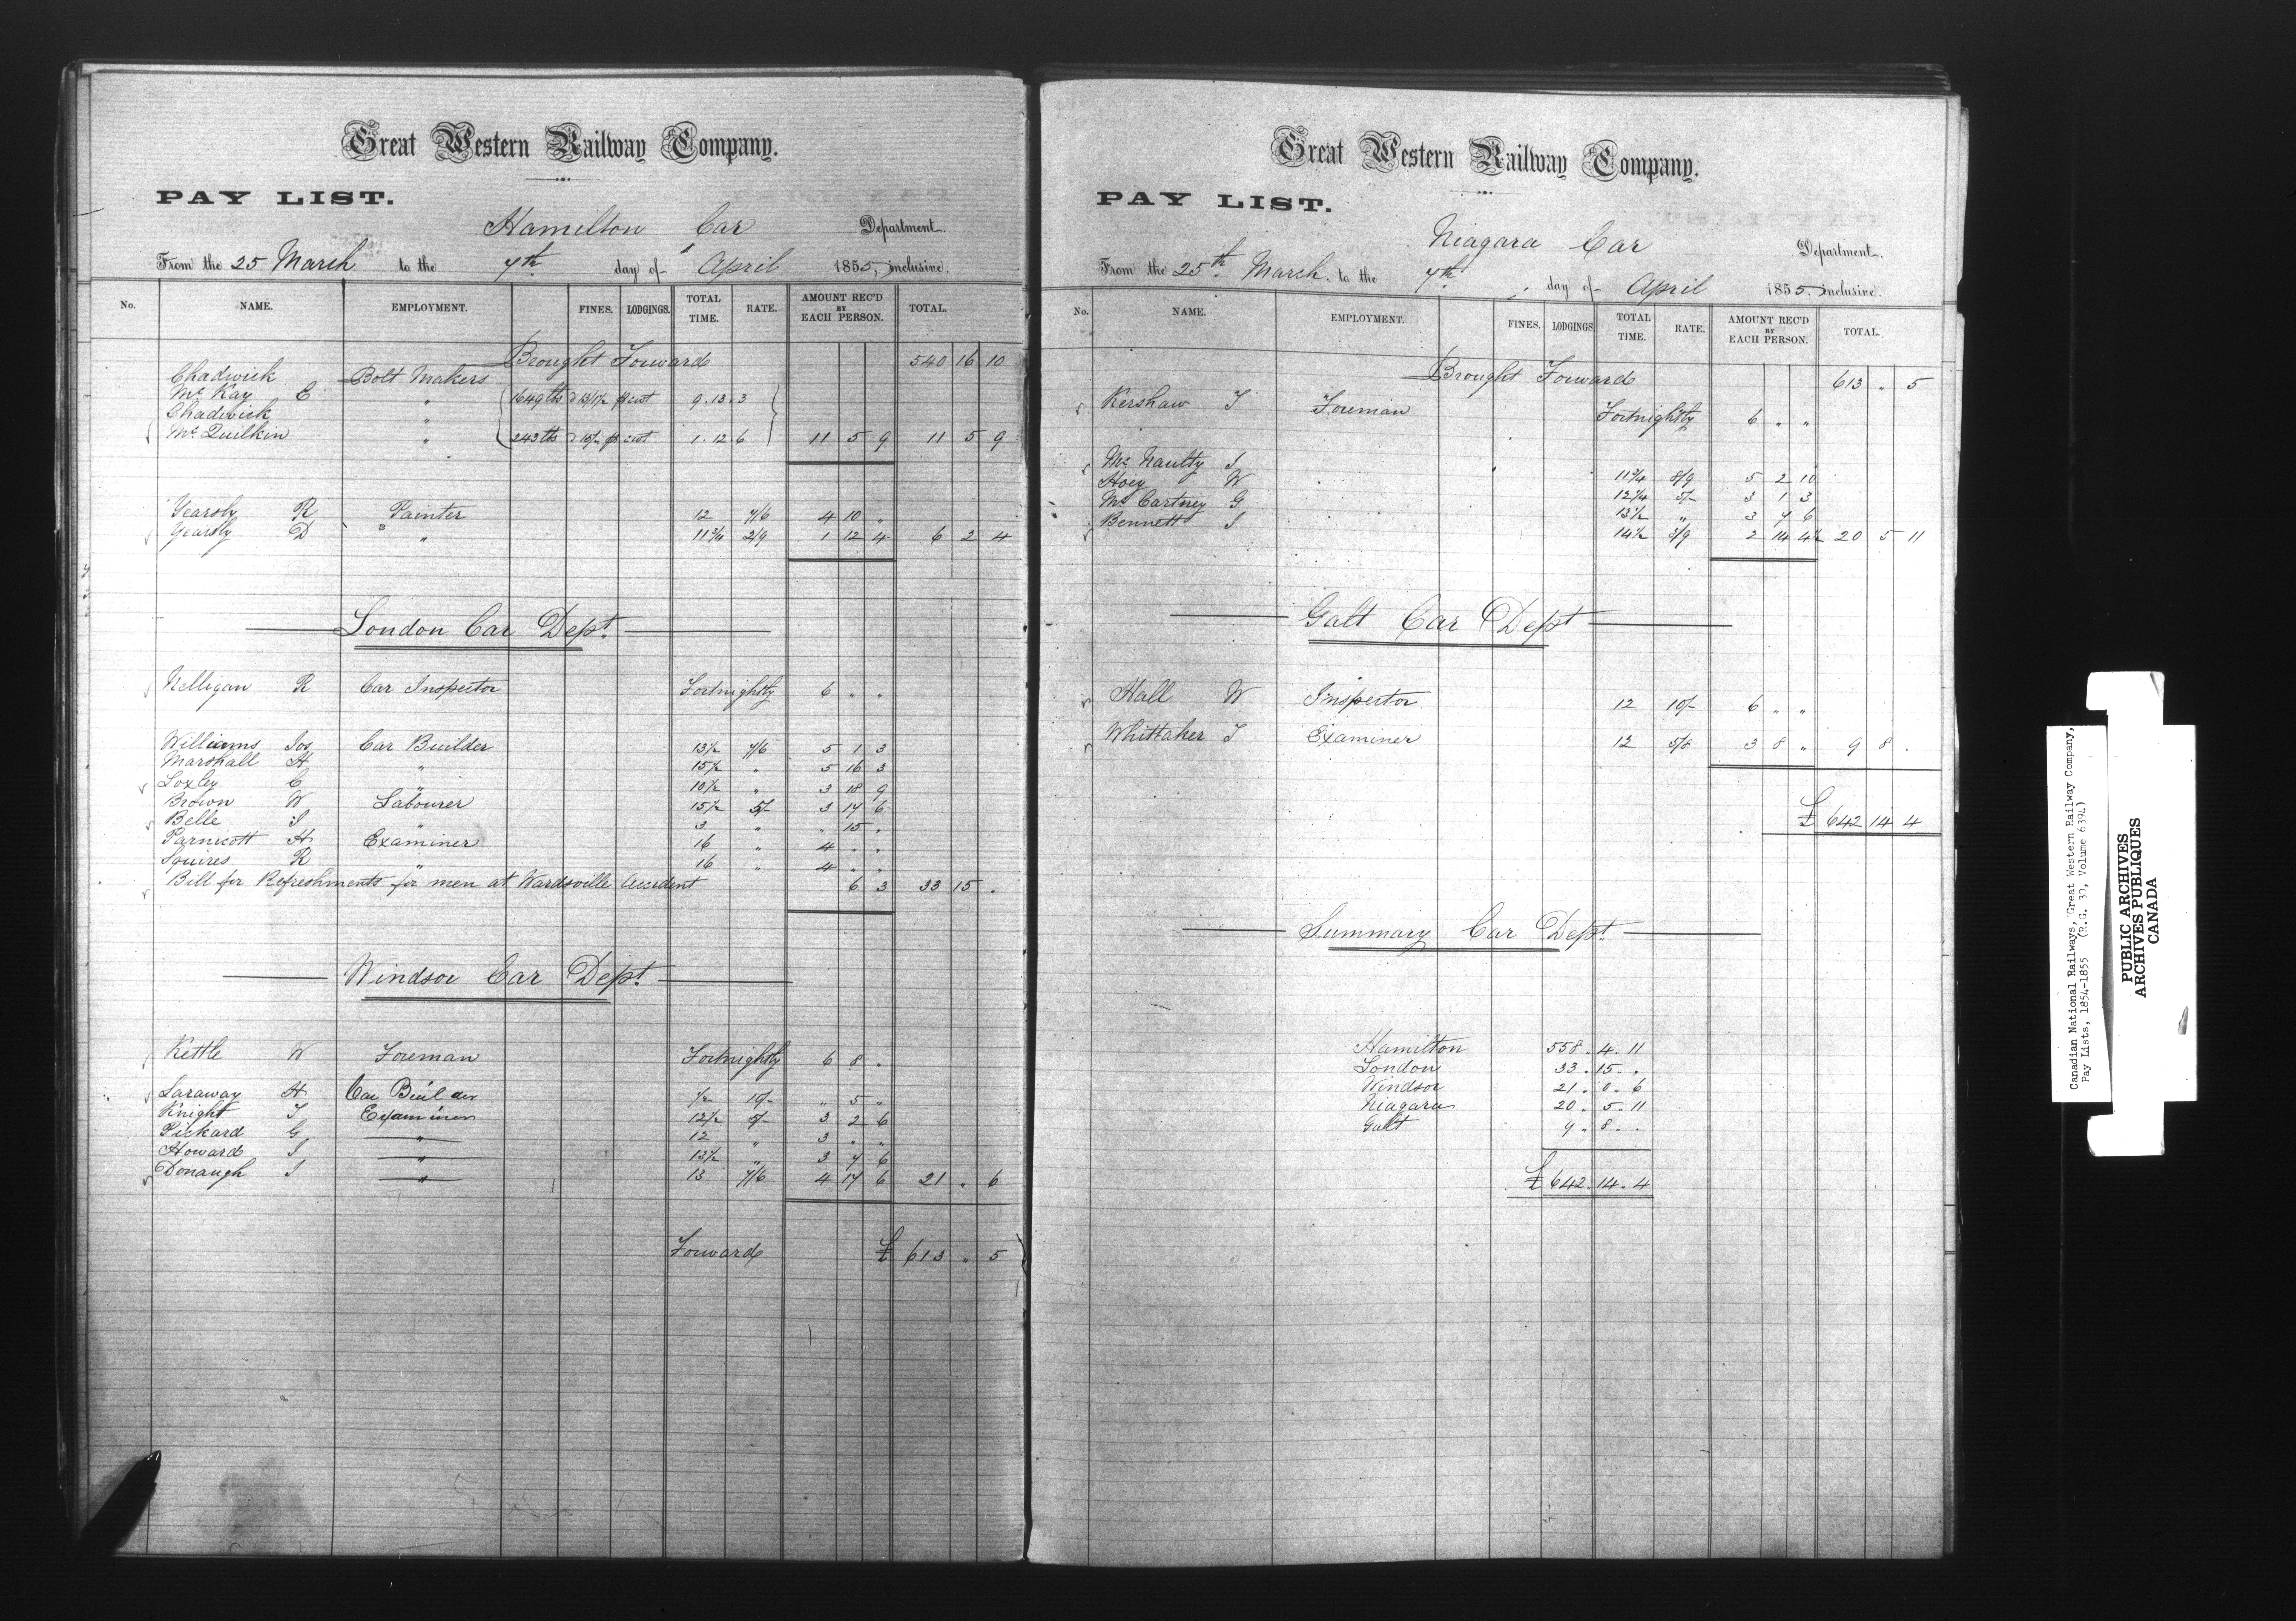 Great Western Railway Company.
PAY LIST.
Hamilton Car Department.
From the 25 March to the 7th day of April 1855, inclusive.
No. NAME. EMPLOYMENT. FINES. LODGINGS. TOTAL TIME. RATE. AMOUNT REC'D BY EACH PERSON. TOTAL.
Brought Forward 540 16 10
Chadwick Bolt Makers
Mc Kay E " 1649 lbs 13/1½ cwt 9.13.3
Chadwick
Mc Quilkin " 243 lbs cwt 1.12.6 11 5 9 11 5 9
Yearsly R Painter 12 7/6 4 10 "
Yearsly D " 11¾ 2/9 1 12 4 6 2 4
London Car Dept.
Nelligan R Car Inspector Fortnightly 6 " "
Williams Jos Car Builder 13½ 7/6 5 1 3
Marshall H " 15½ " 5 16 3
Loxley C " 10½ " 3 18 9
Brown W Labourer 15½ 5/- 3 17 6
Belle J " 3 " " 15 "
Parnicott H Examiner 16 " 4 " "
Squires R " 16 " 4 " "
Bill for Refreshments for men at Wardsville Accident 6 3 33 15 .
Windsor Car Dept.
Kettle W Foreman Fortnightly 6 8 .
Laraway H Car Builder ½ 10/- " 5 "
Knight T Examiner 12½ 5/- 3 2 6
Pickard G " 12 " 3 " "
Howard J " 13½ " 3 7 6
Donaugh J " 13 7/6 4 17 6 21 " 6
Forward £ 613 " 5
Great Western Railway Company.
PAY LIST.
Niagara Car Department.
From the 25th March. to the 7th day of April 1855, inclusive.
No. NAME. EMPLOYMENT. FINES. LODGINGS. TOTAL TIME. RATE. AMOUNT REC'D BY EACH PERSON. TOTAL.
Brought Forward 613 " 5
Kershaw T Foreman Fortnightly 6 " "
Mc Naulty J 11¾ 8/9 5 2 10
Hoey W 12¼ 5/- 3 1 3
Mc Cartney G 13½ " 3 7 6
Bennett J 14½ 3/9 2 14 4½ 20 5 11
Galt Car Dept
Hall W Inspector 12 10/- 6 " "
Whittaker T Examiner 12 5/8 3 8 " 9 8 .
£ 642 14 4
Summary Car Dept.
Hamilton 558 . 4 . 11
London 33 . 15 . .
Windsor 21 . 0 . 6
Niagara 20 . 5 . 11
Galt 9 . 8 . .
£ 642 . 14 . 4
Canadian National Railways, Great Western Railway Company,
Pay Lists, 1854-1855 (R.G. 30, Volume 6394)
PUBLIC ARCHIVES
ARCHIVES PUBLIQUES
CANADA